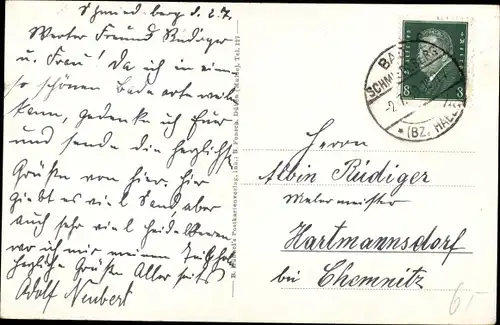 Schmied.berg d. 2.7.
Werter Freund Rüdiger
u. Frau! Da ich in ein
so schönen Bade orte weil
kann, gedenke ich Euer
und sende die herzlichst
Grüßen von hier, hier
giebt es viel Sand, aber
auch sehr viel Heidelbeeren
wo ich mir meinen
herzliche Grüßen Aller seits
Adolf Neubert
BAD
SCHMIEDEBERG
(BZ. HALLE)
8 8
Herrn
Albin Rüdiger
Malermeister
Hartmannsdorf
bei Chemnitz
6,-